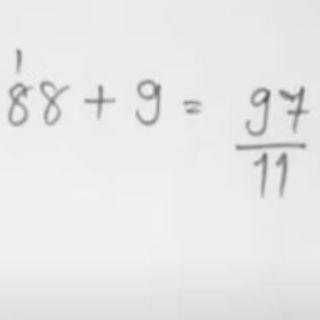 1
88 + 9 = 97
11